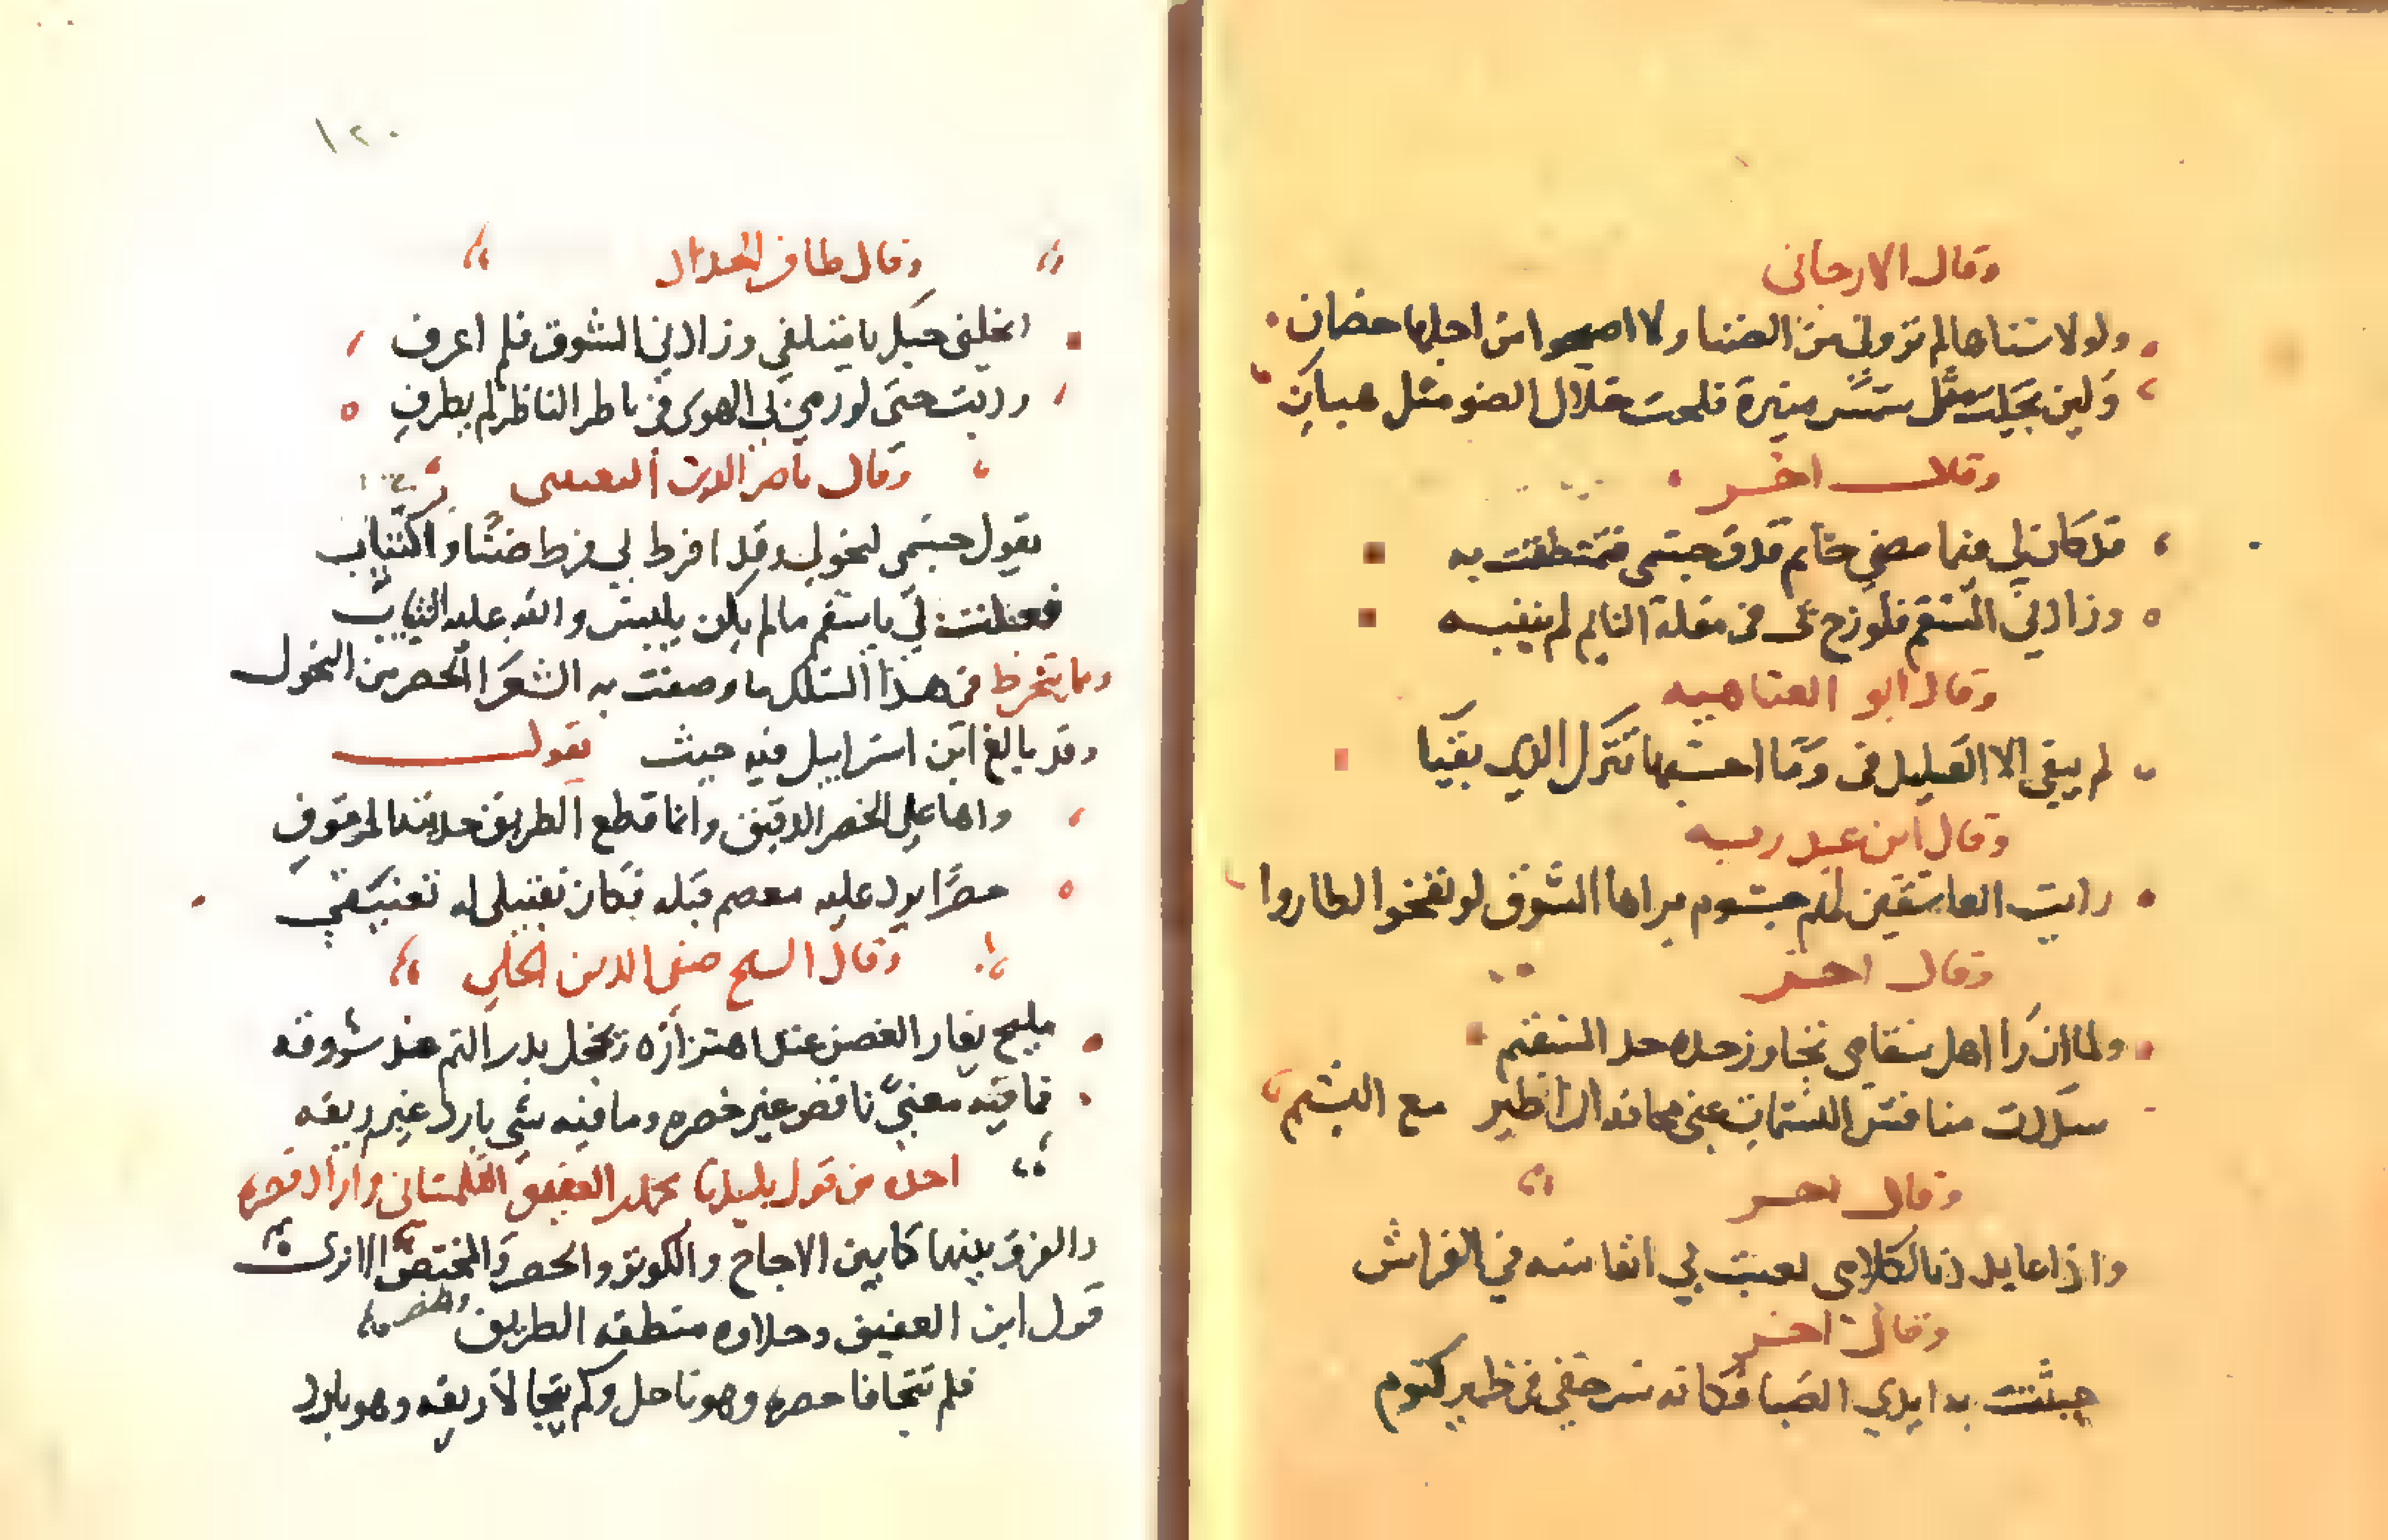 وقال الارجاني
ولولا سناها لم تروني من الضنا ولا اصبحوا من اجلها
ولين تجلت مثل شمس منيرة فلحت خلال الضو مثل هباءٍ
وقال اخر
قد كان لي فيما مضي خاتم فدق جسمي فتمنطقت به
وزادني السقم فلو زج بي في مقلة النايم لم ينتبه
وقال ابو العتاهيه
لم يبقي الا القليل في وما احسبها تترك الذي بقيا
وقال ابن عبد ربه
رايت العاشقين لهم جسوم براها الشوق لو نفخوا لطاروا
وقال اخر
ولما ان را اهل سقامي تجاوز حده حد السقم
مع النسيم
وقال اخر
واذا عايد دنا لكلامي لعبت بي انفاسه في الفراش
وقال اخر
عبثت به ايدي الصبا فكانه سر خفي في ظمير كتوم
١٢٠
وقال ظافر الحداد
انحلني حبك يا متلفي وزادني الشوق فلم اعرف
وذبت حتى لو رمي بي الهوى في ناظر الناظر لم يطرفِ
وقال ناصر الدين النفيسى
يقول جسمي لنحولي وقد افرط بي فرط ضنًا واكتياب
فعلت بي يا سقم مالم يكن يلبس والله عليه الثياب
ومما ينخرط في هذا السلك ما وصفت به الشعرا الخصر من النحول
وقد بالغ ابن اسراييل فيه حيث يقول
واها على الخصر الدقيق وانما قطع الطريق حديثنا لموقوف
خصرًا يود عليه معصم قبله فكان تقبيلي له تعنيفي
وقال الشيخ صفي الدين الحلي
مليح يغار الغصن عند اهتزازه ويخجل بدر التم عند شروقه
فما فيه معنيً ناقص غير خصره وما فيه شي بارد غير ريقه
اخذه من قول بلديا محمد العفيف التلمساني واراد قصره
والفرق بينهما كما بين الاجاج والكوثر والخصر والمختصر الا ترى
قول ابن العفيف وحلاوه منطقه الطريف
فلم تتجافا خصره وهو ناحل وكم يتحالا ريقه وهو بارد